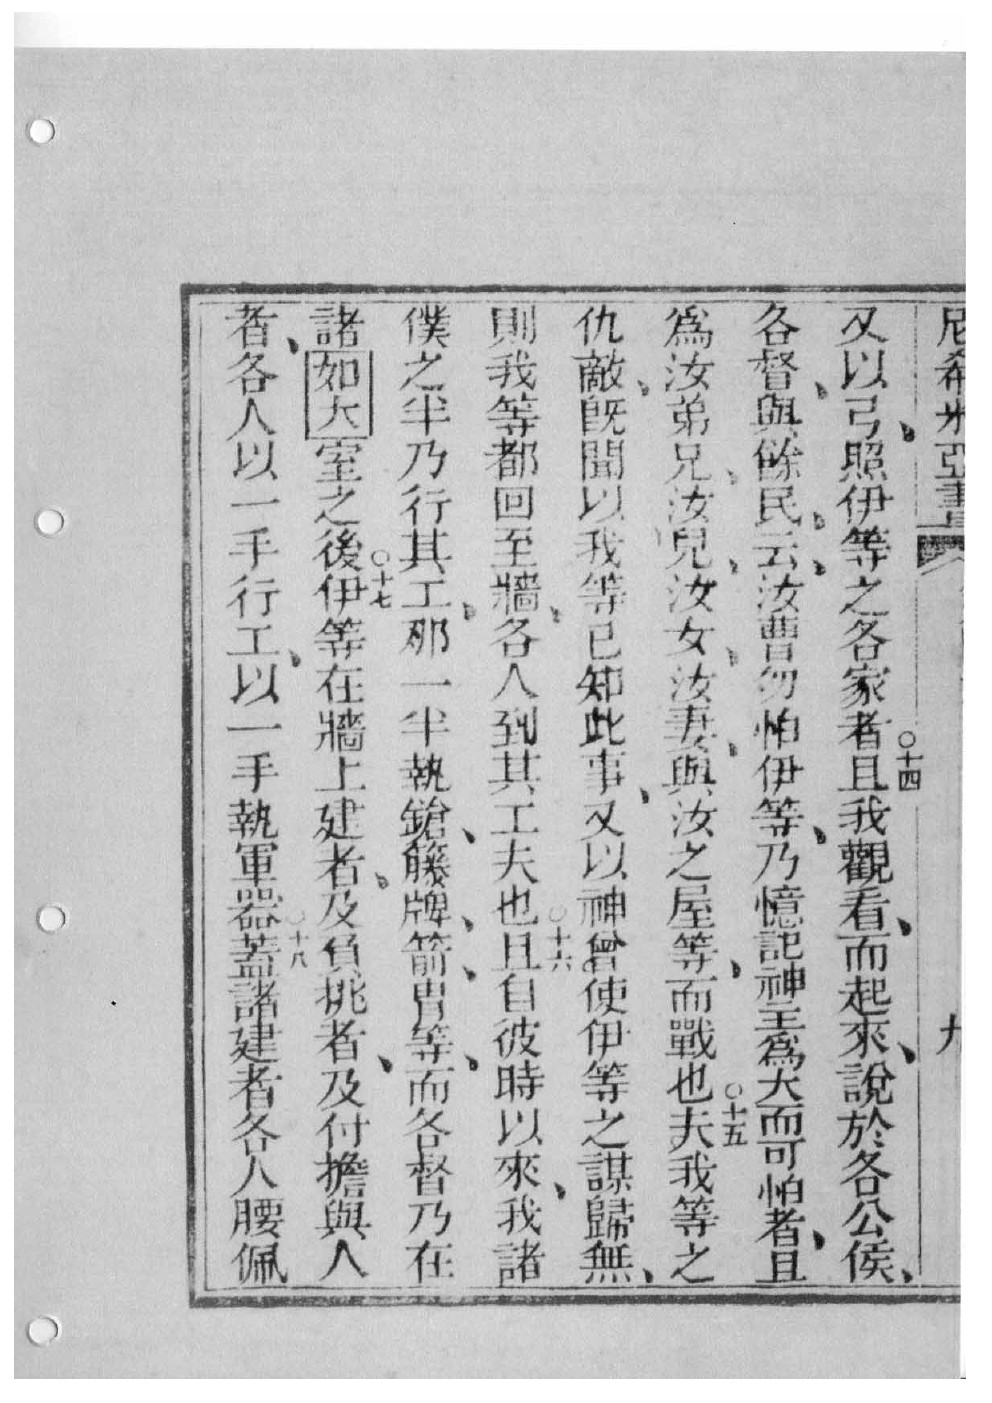 尼希米亞書 九
又以弓、照伊等之各家者○十四且我觀看、而起來、說於各公侯、
各督、與餘民、云、汝曹勿怕伊等、乃憶記神主為大而可怕者、且
為汝弟兄、汝兒、汝女、汝妻、與汝之屋等、而戰也○十五夫我等之
仇敵、旣聞以我等已知此事、又以神曾使伊等之謀歸無、
則我等都回至牆、各人到其工夫也○十六且自彼時以來、我諸
僕之半乃行其工、那一半執鎗、籐牌、箭、冑等、而各督乃在
諸如大室之後○十七伊等在牆上建者、及負挑者、及付擔與人
者、各人以一手行工、以一手執軍器○十八蓋諸建者各人腰佩